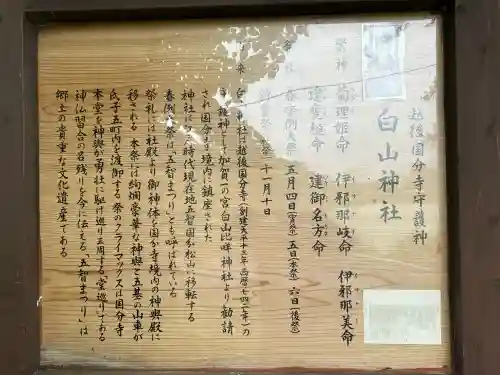 越後国分寺守護神
白山神社
祭神 菊理姫命 伊邪那岐命 伊邪那美命
建御名方命
春季例大祭 五月四日(宵祭) 五日(本祭) 六日(後祭)
十一月十日
由来 白山神社は越後国分寺(創建天平十三年 西暦七四一年)の
守護神として加賀一の宮白山比咩神社より勧請
され国分寺境内に鎮座された
神社は 時代現在地五智国分松山に移転する
春例大祭は「五智まつり」とも呼ばれている
祭礼には社殿より御神体を国分寺境内の神輿殿に
移される 本祭には絢爛豪華な神輿と五基の山車が
氏子五町内を渡御する 祭のクライマックスは国分寺
本堂を神輿が勇壮に駆け巡り三周する「堂巡り」である
神仏習合の名残りを今に伝える「五智まつり」は
郷土の貴重な文化遺産である